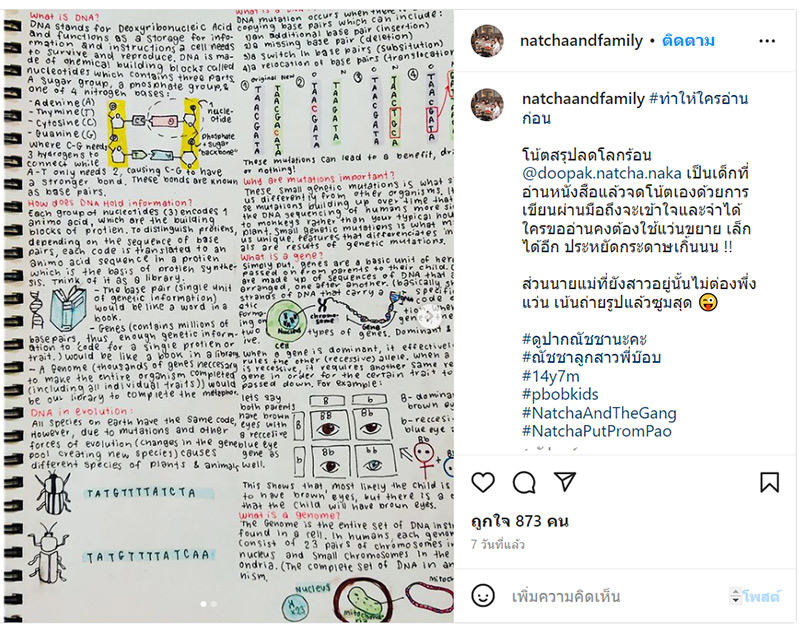 What is DNA?
DNA stands for Deoxyribonucleic Acid
and functions as a storage for info-
rmation and instructions a cell needs
to survive and reproduce. DNA is ma-
de of chemical building blocks called
nucleotides which contains three parts.
A sugar group, a phosphate group, &
one of 4 nitrogen bases:
- Adenine (A)
- Thymine (T)
- Cytosine (C)
- Guanine (G)
where C-G needs
3 hydrogens to
connect while
A-T only needs 2, causing C-G to have
a stronger bond. These bonds are known
as base pairs.
1 nucle-
otide
Phosphate
+ sugar
"backbone"
How does DNA Hold information?
Each group of nucleotides (3) encodes 1
amino acid, which are the building
blocks of protien. To distinguish proteins,
depending on the sequence of base
pairs, each code is translated to an
amino acid sequence in a protien
which is the basis of protien synthe-
sis. Think of it as a library.
- The base pair (single unit
of genetic information)
would be like a word in a
book.
- Genes (contains millions of
base pairs, thus, enough genetic inform-
ation to code for a single protien or
trait.) would be like a book in a library
- A Genome (thousands of genes neccesary
to make the entire organism completed
(including all individual traits)) would
be our library to complete the metaphor.
DNA in evolution:
All species on earth have the same code,
However, due to mutations and other
forces of evolution (changes in the gene
pool creating new species) causes
different species of plants & animals
TATGTTTTATCTA
TATGTTTTATCAA
What is a
DNA mutation occurs when there
copying base pairs which can include:
1) an additional base pair (insertion)
2) a missing base pair (deletion)
3) a switch in base pairs (subsitution)
4) a relocation of base pairs (translocation
Original New
These mutations can lead to a benefit,
or nothing!
Why are mutations important?
These small genetic mutations is what
us different from other organisms. It
se mutations building up over time that
the DNA sequencing of humans more sim
to monkeys rather than your typical hou
plant. Small genetic mutations is what m
us unique, features that differenciates in
als are results of genetic mutations.
What is a gene?
Simply put, genes are a basic unit of here
passed on from parents to their child.
are made up of sequences of DNA that a
arranged, one after another. (basically s
strands of DNA that carry a
etic code
forma-
ing on
two types of genes. Dominant &
ive.
Nucleus
Cell
chromo-
some
Gene
When a gene is dominant, it effectivel
rules the other (recessive) allele. when a
is recessive, it requires another same re
gene in order for the certain trait to
passed down. For example:
lets say
both parents
have brown
eyes with
a reccesive
blue eye
gene as
well.
B b
B BB Bb
b Bb bb
B-domin
brown ey
b-reccesi
blue eye
Bb
This shows that, most likely the child is
to have brown eyes, but there is a
that the child will have brown eyes.
What is a genome?
The Genome is the entire set of DNA inst
found in a cell. In humans, each geno
consist of 23 pairs of chromosomes in
nucleus and small chromosomes in the
ondria. (The complete set of DNA in an
nism.
Nucleus
x23
natchaandfamily • ติดตาม
natchaandfamily #ทำให้ใครอ่าน
ก่อน
โน้ตสรุปลดโลกร้อน
@doopak.natcha.naka เป็นเด็กที่
อ่านหนังสือแล้วจดโน้ตเองด้วยการ
เขียนผ่านมือถึงจะเข้าใจและจำได้
ใครขออ่านคงต้องใช้แว่นขยาย เล็ก
ได้อีก ประหยัดกระดาษเกิ๊นนน !!
ส่วนนายแม่ที่ยังสาวอยู่นั้นไม่ต้องพึ่ง
แว่น เน้นถ่ายรูปแล้วซูมสุด 😜
#ดูปากณัชชานะคะ
#ณัชชาลูกสาวพี่บ๊อบ
#14y7m
#pbobkids
#NatchaAndTheGang
#NatchaPutPromPao
ถูกใจ 873 คน
7 วันที่แล้ว
เพิ่มความคิดเห็น
โพสต์